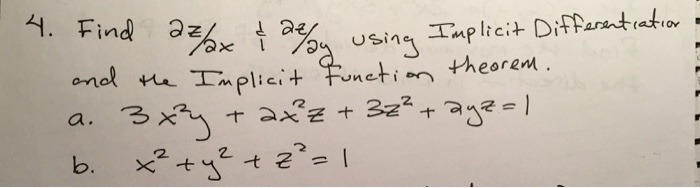 4. Find ∂z/∂x & ∂z/∂y using Implicit Differentiation
and the Implicit Function theorem.
a. 3x²y + 2x²z + 3z² + 2yz = 1
b. x² + y² + z² = 1